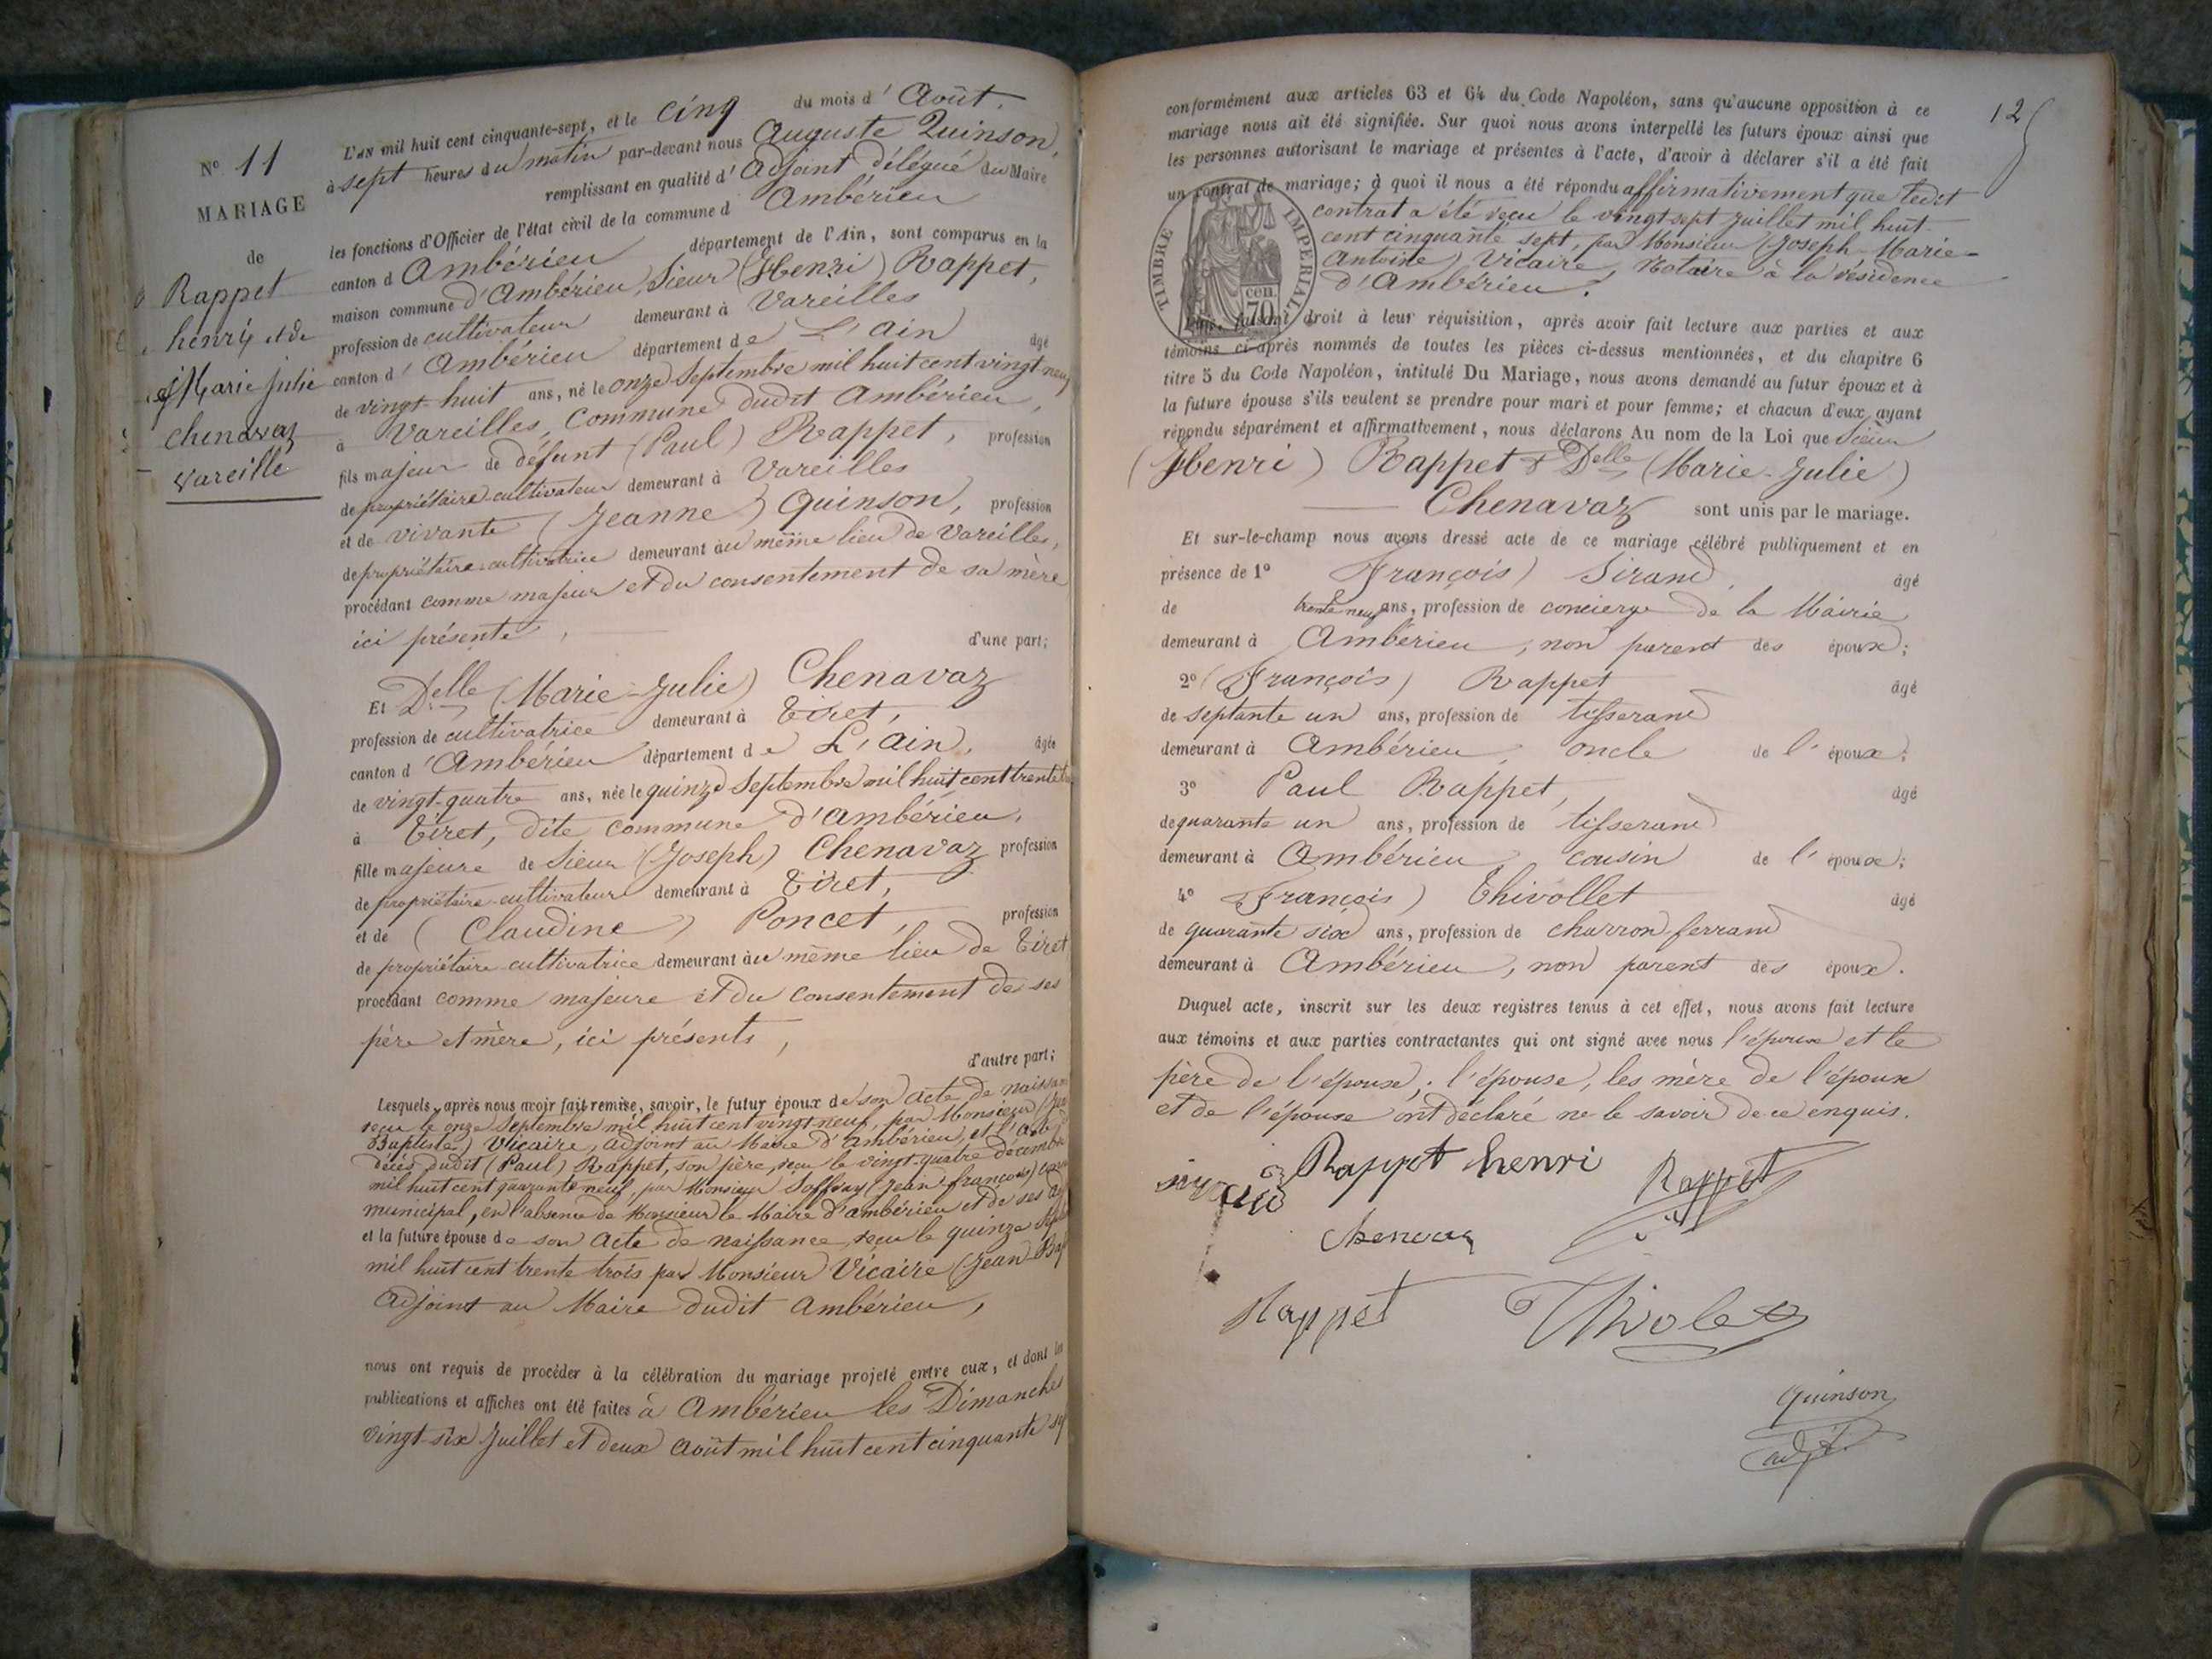 N° 11
MARIAGE
de
Rappet
henri et de
Marie Julie
chenavaz
Vareille
L'AN mil huit cent cinquante-sept, et le cinq du mois d'Août,
à sept heures du matin par-devant nous Auguste Quinson,
remplissant en qualité d'Adjoint délégué du Maire
les fonctions d'Officier de l'état civil de la commune d Ambérieu
canton d Ambérieu département de l'Ain, sont comparus en la
maison commune d'Ambérieu, Sieur (Henri) Rappet,
profession de cultivateur demeurant à Vareilles
canton d'Ambérieu département de L'ain âgé
de vingt-huit ans, né le onze Septembre mil huit cent vingt neuf
à Vareilles, Commune dudit Ambérieu,
fils majeur de défunt (Paul) Rappet, profession
de propriétaire-cultivateur demeurant à Vareilles
et de vivante (Jeanne) Quinson, profession
de propriétaire-cultivatrice demeurant au même lieu de Vareilles,
procédant comme majeur et du consentement de sa mère
ici présente, d'une part;
Et Delle (Marie-Julie) Chenavaz
profession de cultivatrice demeurant à Tiret,
canton d'Ambérieu département de L'ain, âgée
de vingt-quatre ans, née le quinze Septembre mil huit cent trente
à Tiret, dite commune d'Ambérieu,
fille majeure de Sieur (Joseph) Chenavaz profession
de propriétaire-cultivateur demeurant à Tiret,
et de (Claudine) Poncet, profession
de propriétaire-cultivatrice demeurant au même lieu de Tiret
procédant comme majeure et du consentement de ses
père et mère, ici présents,
d'autre part;
Lesquels, après nous avoir fait remise, savoir, le futur époux de son acte de naissance
reçu le onze Septembre mil huit cent vingt neuf, par Monsieur (Jean
Baptiste) Vicaire, adjoint au Maire d'Ambérieu, et l'acte de
décès dudit (Paul) Rappet, son père, reçu le vingt-quatre décembre
mil huit cent quarante neuf, par Monsieur Joffray (Jean-françois)
municipal, en l'absence de Monsieur le Maire d'ambérieu et de ses
et la future épouse de son acte de naissance, reçu le quinze
mil huit cent trente trois par Monsieur Vicaire (Jean
adjoint au Maire dudit Ambérieu,
nous ont requis de procéder à la célébration du mariage projeté entre eux, et dont les
publications et affiches ont été faites à Ambérieu les Dimanches
vingt-six Juillet et deux Août mil huit cent cinquante
125
conformément aux articles 63 et 64 du Code Napoléon, sans qu'aucune opposition à ce
mariage nous ait été signifiée. Sur quoi nous avons interpellé les futurs époux ainsi que
les personnes autorisant le mariage et présentes à l'acte, d'avoir à déclarer s'il a été fait
un contrat de mariage; à quoi il nous a été répondu affirmativement que ledit
contrat a été reçu le vingt sept Juillet mil huit
cent cinquante sept, par Monsieur (Joseph-Marie-
Antoine) Vicaire, Notaire à la résidence
d'Ambérieu.
TIMBRE IMPERIAL
70 cen
faisant droit à leur réquisition, après avoir fait lecture aux parties et aux
témoins ci-après nommés de toutes les pièces ci-dessus mentionnées, et du chapitre 6
titre 5 du Code Napoléon, intitulé Du Mariage, nous avons demandé au futur époux et à
la future épouse s'ils veulent se prendre pour mari et pour femme; et chacun d'eux ayant
répondu séparément et affirmativement, nous déclarons Au nom de la Loi que Sieur
(Henri) Rappet & Delle (Marie-Julie)
Chenavaz sont unis par le mariage.
Et sur-le-champ nous avons dressé acte de ce mariage célébré publiquement et en
présence de 1° François) Sirand, âgé
de trente neuf ans, profession de concierge de la Mairie
demeurant à Ambérieu, non parent des époux;
2° (François) Rappet âgé
de septante un ans, profession de tisserand
demeurant à Ambérieu, oncle de l'époux;
3° Paul Rappet, âgé
de quarante un ans, profession de tisserand
demeurant à Ambérieu, cousin de l'époux;
4° François) Thivollet âgé
de quarante six ans, profession de charron-ferrand
demeurant à Ambérieu, non parent des époux.
Duquel acte, inscrit sur les deux registres tenus à cet effet, nous avons fait lecture
aux témoins et aux parties contractantes qui ont signé avec nous l'époux et le
père de l'épouse; l'épouse, les mère de l'époux
et de l'épouse ont déclaré ne le savoir de ce enquis.
Rappet henri Rappet
chenavaz
Rappet Thivolet
Quinson
adjt